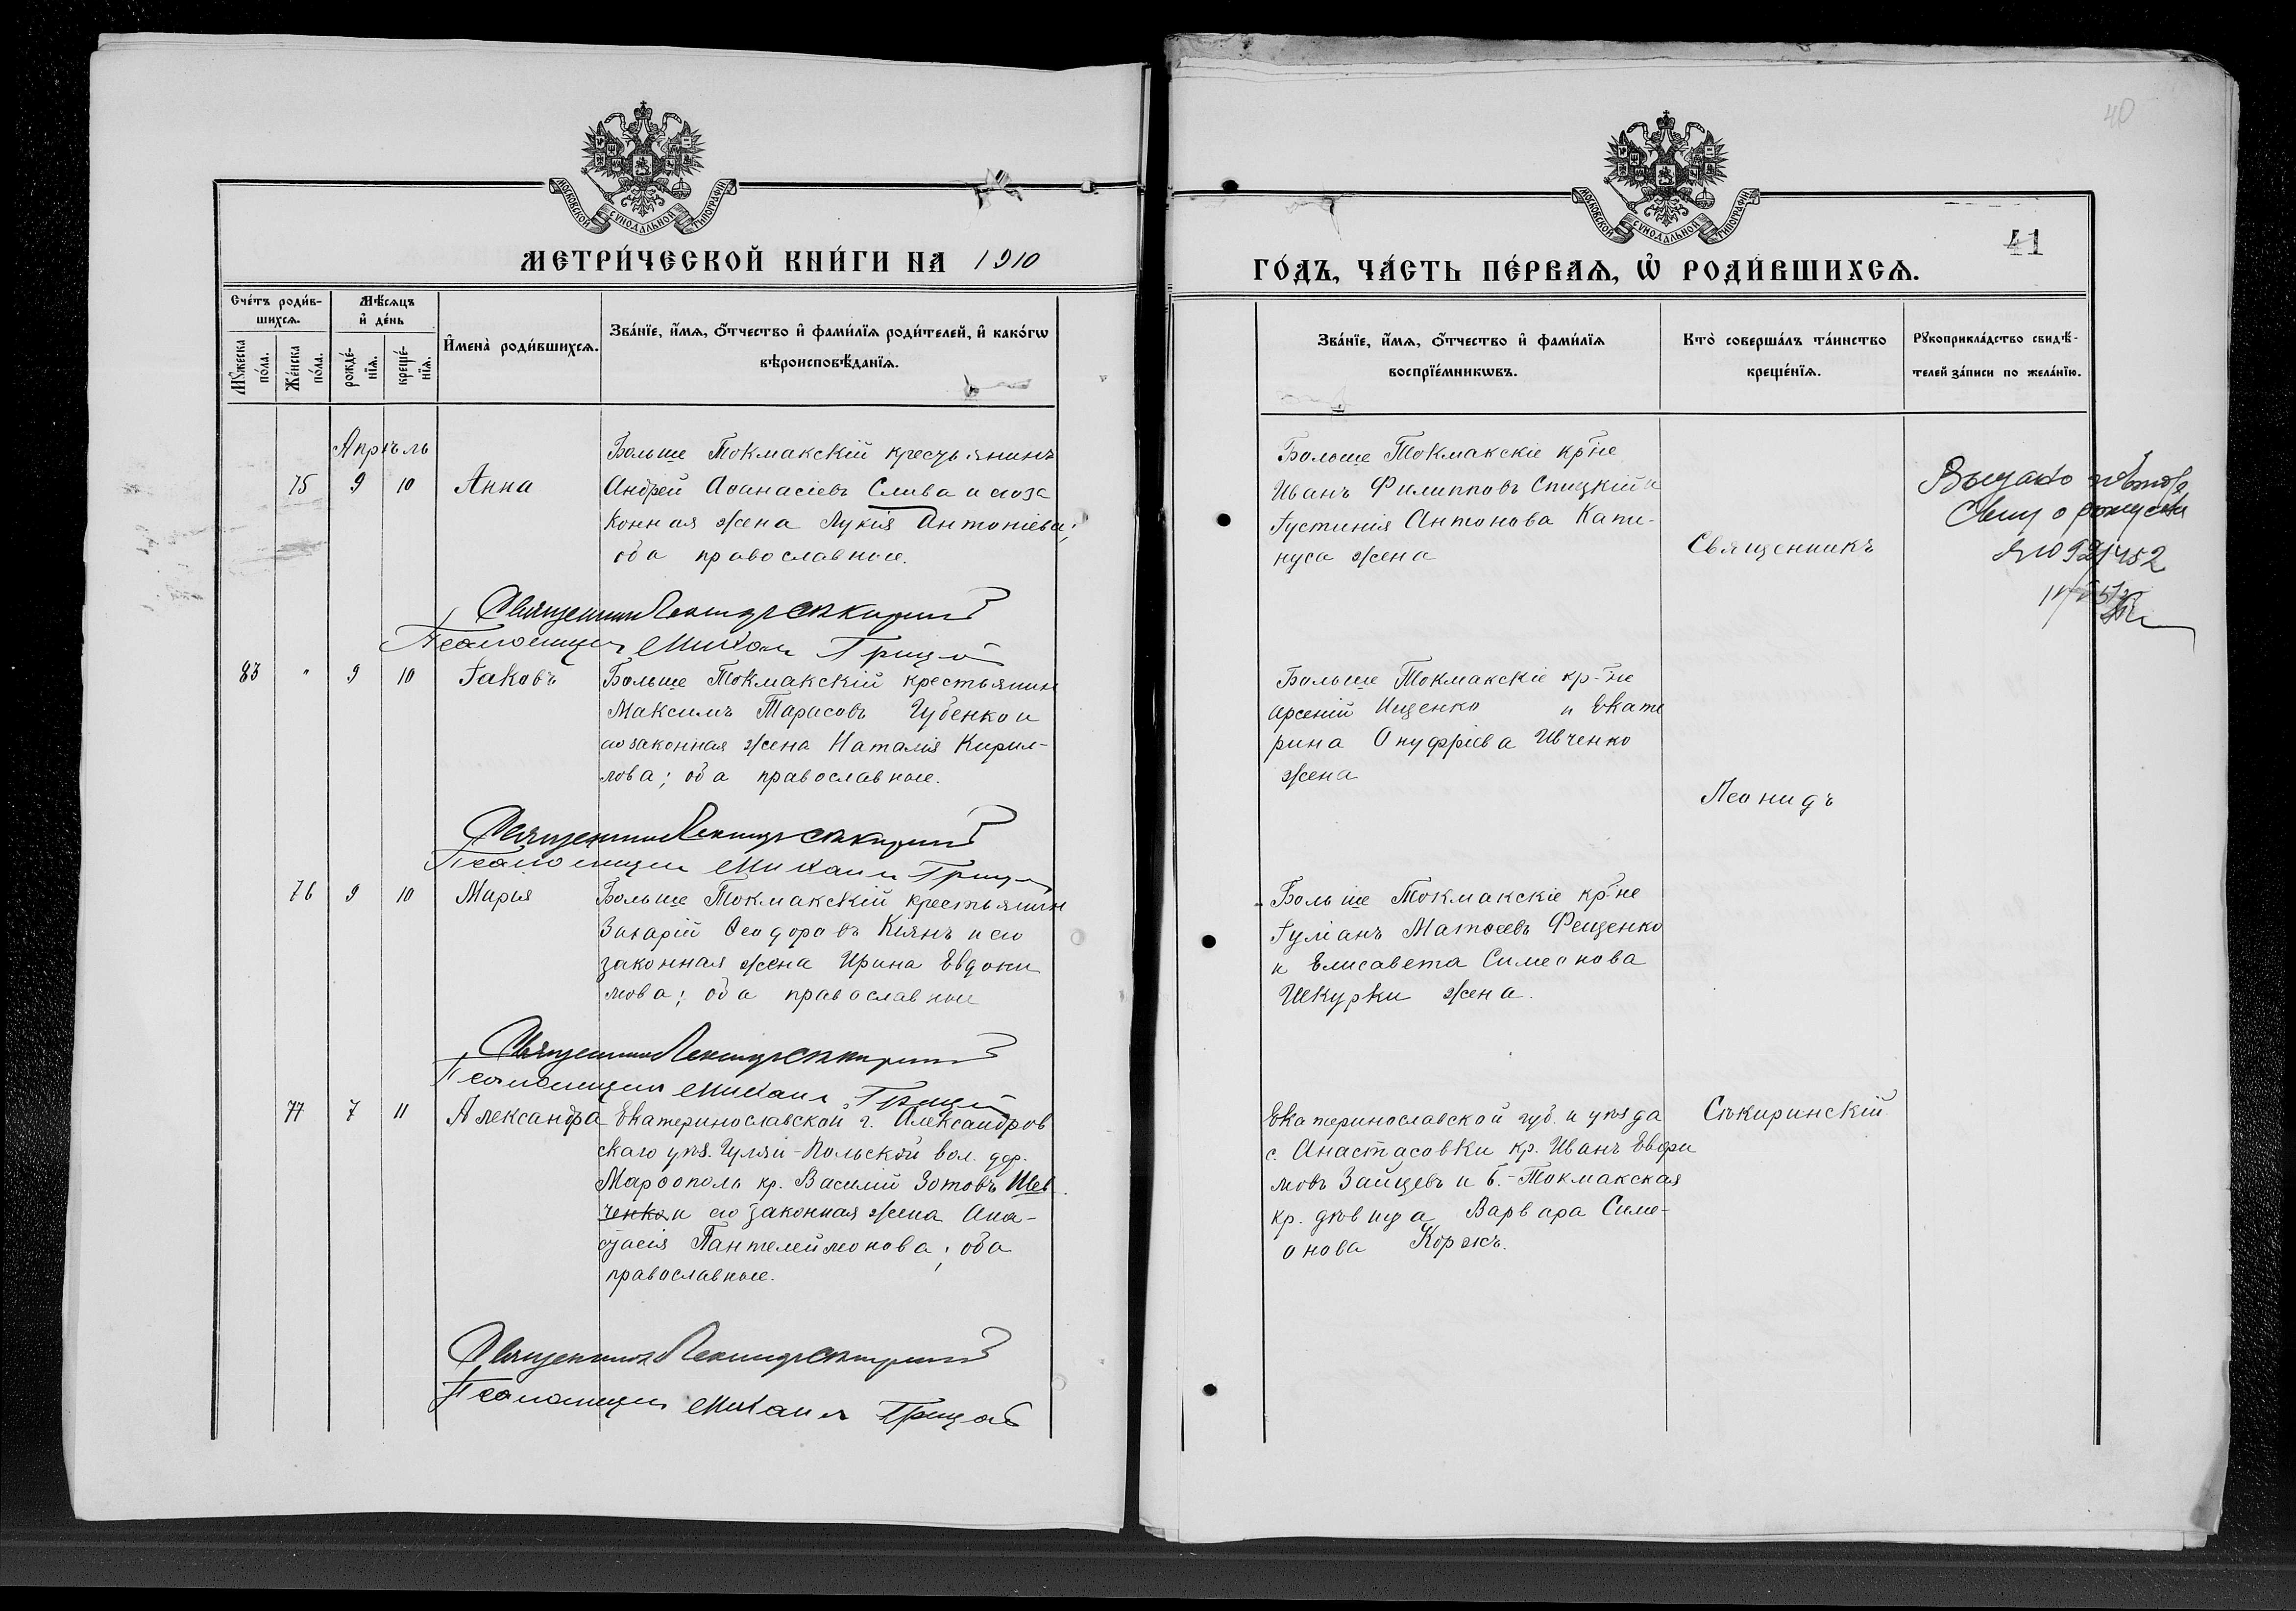 МОСКОВСКОЙ СУНОДАЛЬНОЙ ТИПОГРАФІИ
МЕТРИ́ЧЕСКОЙ КНИ́ГИ НА 1910
Сче́тъ роди́в-
шихсѧ.
Мѣ́сѧцъ
и҆ де́нь
Мꙋ́жеска
по́ла.
Же́нска
по́ла.
рожде́-
нїѧ.
креще́-
нїѧ.
И҆мена̀ роди́вшихсѧ.
Зва́нїе, и҆́мѧ, ѻ҆́тчество и҆ фами́лїѧ роди́телей, и҆ како́гѡ
вѣроисповѣ́данїѧ.
Апрѣль
75 9 10 Анна
Больше Токмакскій крестьянинъ
Андрей Аѳанасіевъ Слива и єго за
конная жена Лукія Антоніева;
оба православные.
Священникъ Леонидъ Сѣкиринскій
Псаломщикъ Михаилъ Грицай
83 " 9 10 Іаковъ
Больше Токмакскій крестьянин
Максимъ Тарасовъ Губенко и
его законная жена Наталія Кирил-
лова; оба православные.
Священникъ Леонидъ Сѣкиринскій
Псаломщикъ Михаилъ Грицай
76 9 10 Марія
Больше Токмакскій крестьянин
Захарій Ѳеодоровъ Кіянъ и его
законная жена Ирина Евдоки
мова; оба православные
Священникъ Леонидъ Сѣкиринскій
Псаломщикъ Михаилъ Грицай
77 7 11 Александра
Екатеринославской г. Александров
скаго уѣз. Гуляй-Польской вол. дер.
Марѳополь кр. Василій Зотовъ Шев
ченко и его законная жена Ана-
стасія Пантелеймонова; оба
православные.
Священникъ Леонидъ Сѣкиринскій
Псаломщикъ Михаилъ Грицай
40
МОСКОВСКОЙ СУНОДАЛЬНОЙ ТИПОГРАФІИ
41
ГО́ДЪ, ЧА́СТЬ ПЕ́РВАѦ, Ѡ҆ РОДИ́ВШИХСѦ.
Зва́нїе, и҆́мѧ, ѻ҆́тчество и҆ фами́лїѧ
воспрїе́мникѡвъ.
Кто̀ соверша́лъ та́инство
креще́нїѧ.
Рꙋкоприкла́дство свидѣ́-
телей за́писи по жела́нїю.
Больше Токмакскіе кр-не
Иванъ Филипповъ Спицкій и
Іустинія Антонова Капи-
нуса жена
Больше Токмакскіе кр-не
Арсеній Ищенко и Екате
рина Онуфріева Ивченко
жена
Больше Токмакскіе кр-не
Іуліанъ Матѳеевъ Фещенко
и Елисавета Симеонова
Шкурки жена.
Екатеринославской губ. и уѣзда
с. Анастасовки кр. Иванъ Евфи
мовъ Зайцевъ и Б.-Токмакская
кр. дѣвица Варвара Симе-
онова Коржъ.
Священникъ
Леонидъ
Сѣкиринскій